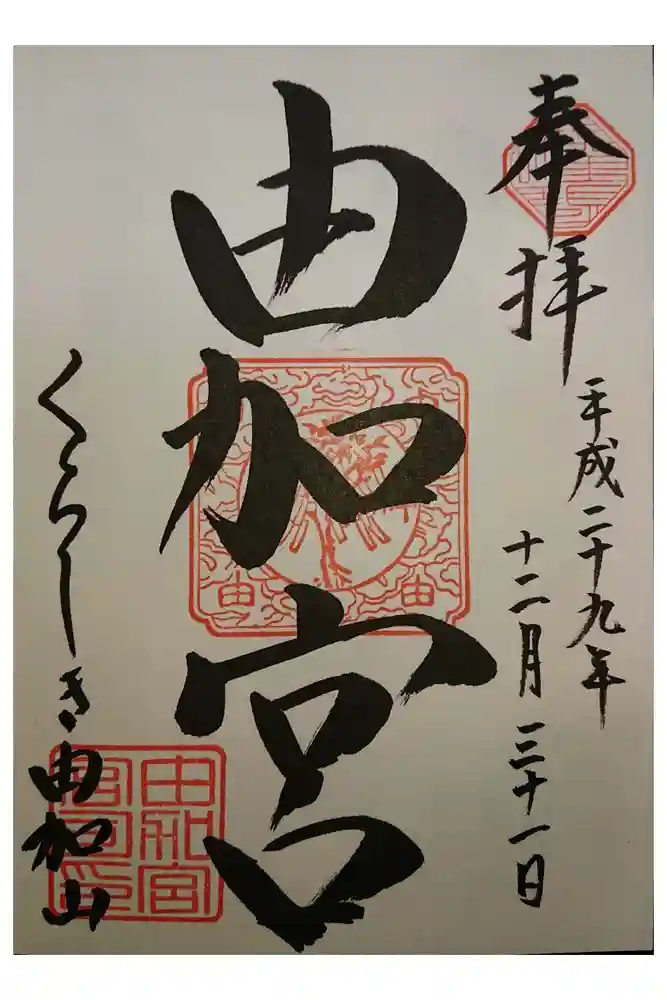 奉拝
平成二十九年
十二月三十一日
由加宮
くらしき由加山
由加宮司印